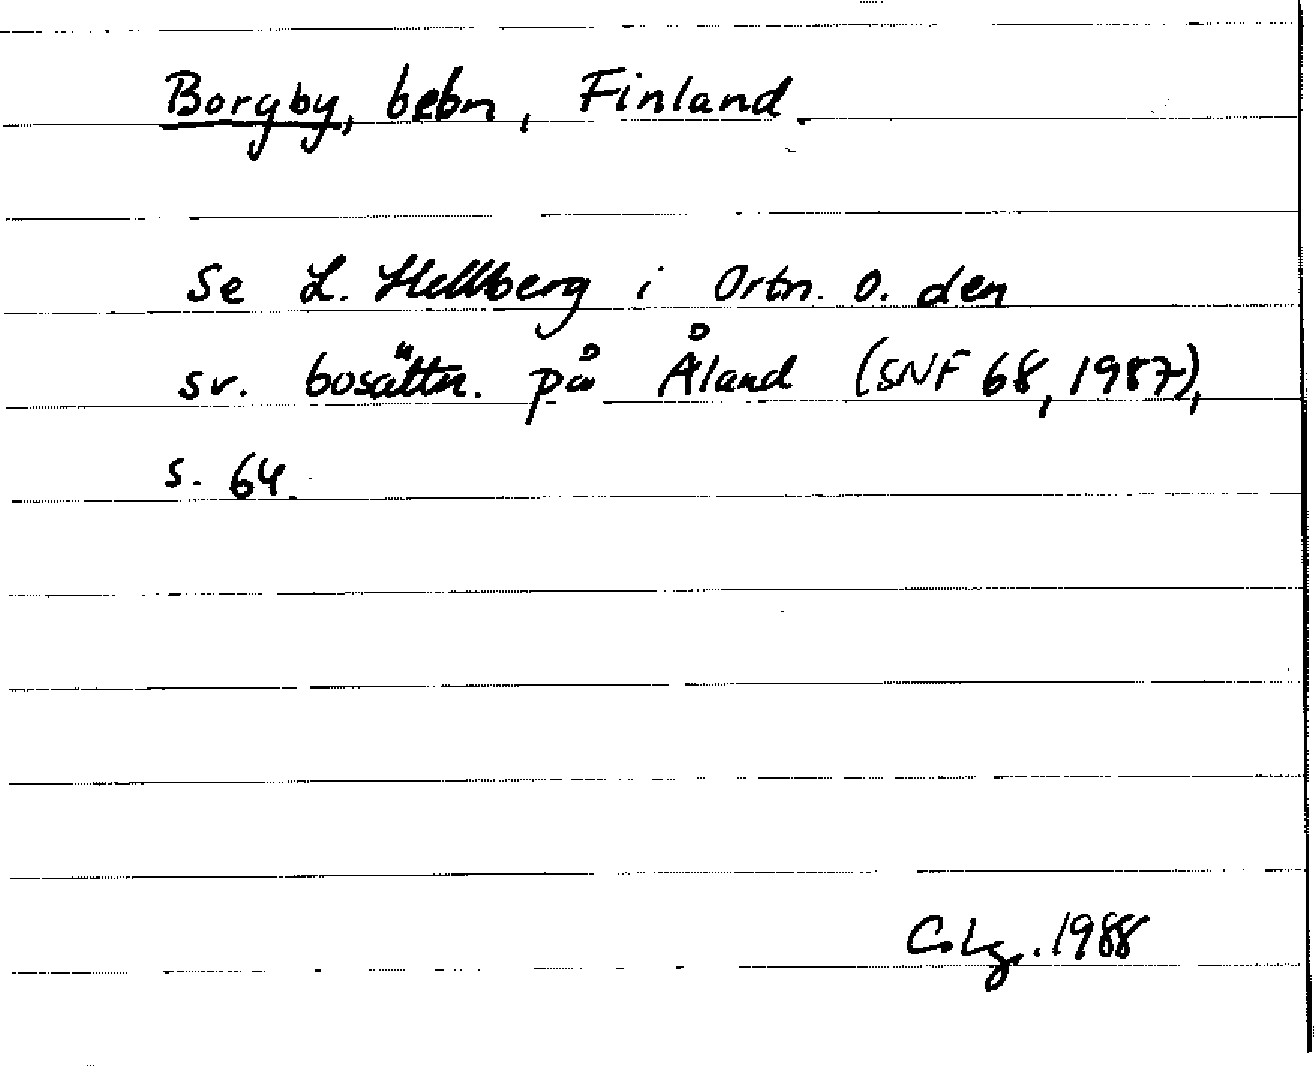 Borgby, bebn, Finland.
Se L. Hellberg i Ortn. o. den
sv. bosättn. på Åland (SNF 68, 1987),
s. 64.
C. Lg. 1988